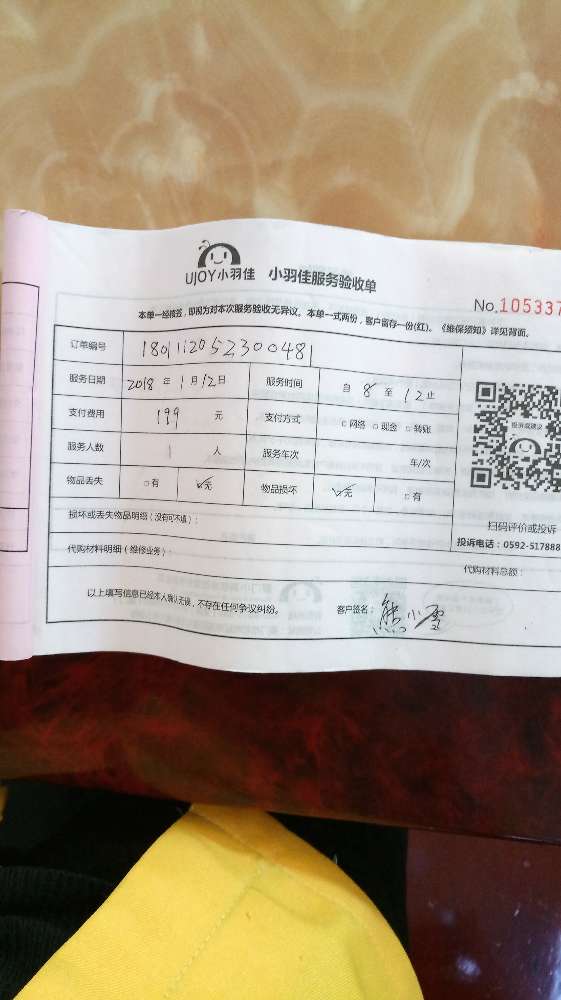 UJOY小羽佳 小羽佳服务验收单
No.105337
本单一经核签,即视为对本次服务验收无异议。本单一式两份,客户留存一份(红)。《维保须知》详见背面。
订单编号 180112052300481
服务日期 2018年1月12日 服务时间 自8至12止
支付费用 199元 支付方式 □网络 □现金 □转账
服务人数 1人 服务车次 车/次
物品丢失 □有 ☑无 物品损坏 ☑无 □有
投诉或建议
扫码评价或投诉
投诉电话:0592-517888
损坏或丢失物品明细(没有可不填):
代购材料明细(维修业务): 代购材料总额:
以上填写信息已经本人确认无误,不存在任何争议纠纷。 客户签名:熊小雪